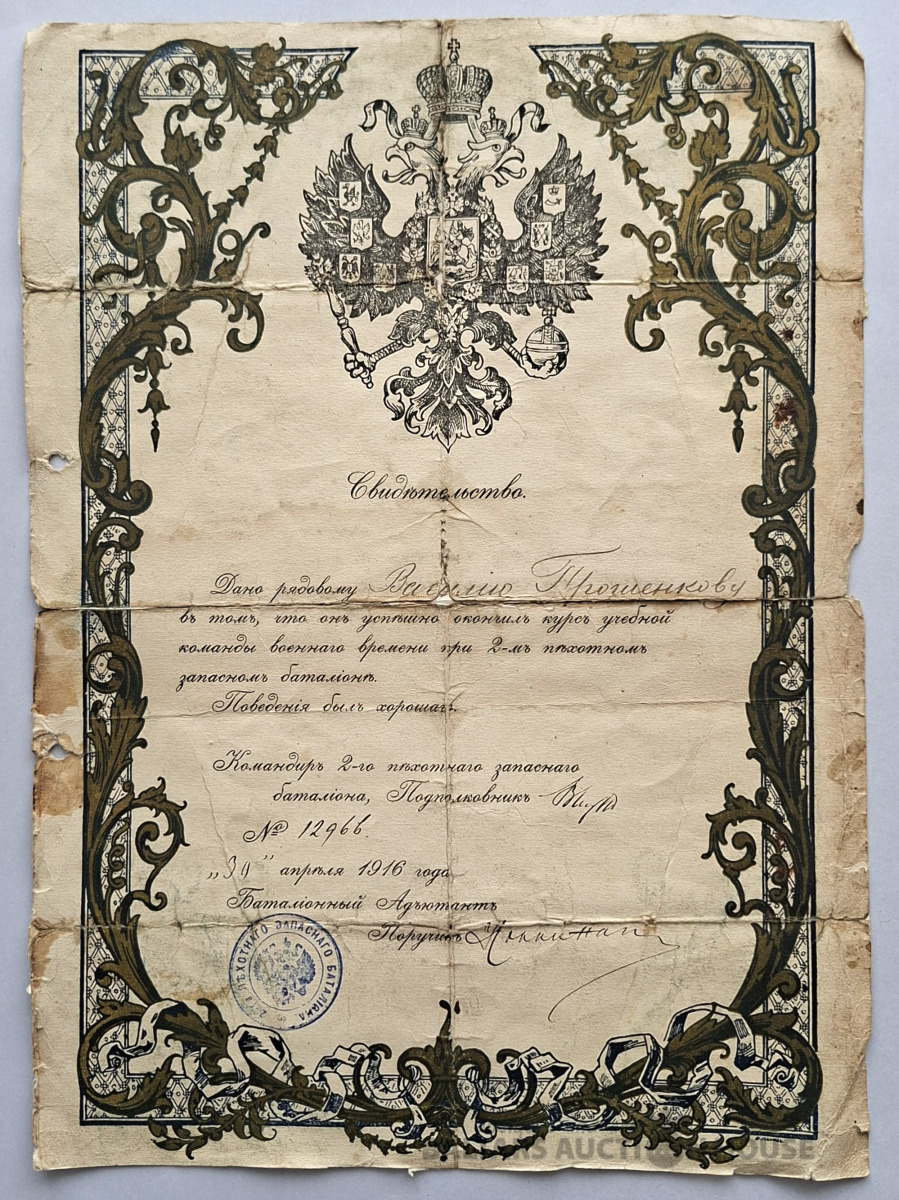 Свидѣтельство.
Дано рядовому Василию Трошенкову
въ томъ, что онъ успѣшно окончилъ курсъ учебной
команды военнаго времени при 2-мъ пѣхотномъ
запасномъ баталіонѣ.
Поведенія былъ хорошаго.
Командиръ 2-го пѣхотнаго запаснаго
баталіона, Подполковникъ
№ 1296
„30" апрѣля 1916 года
Баталіонный Адъютантъ
Поручикъ
ПѢХОТНАГО ЗАПАСНАГО БАТАЛІОНА
AUCTION HOUSE